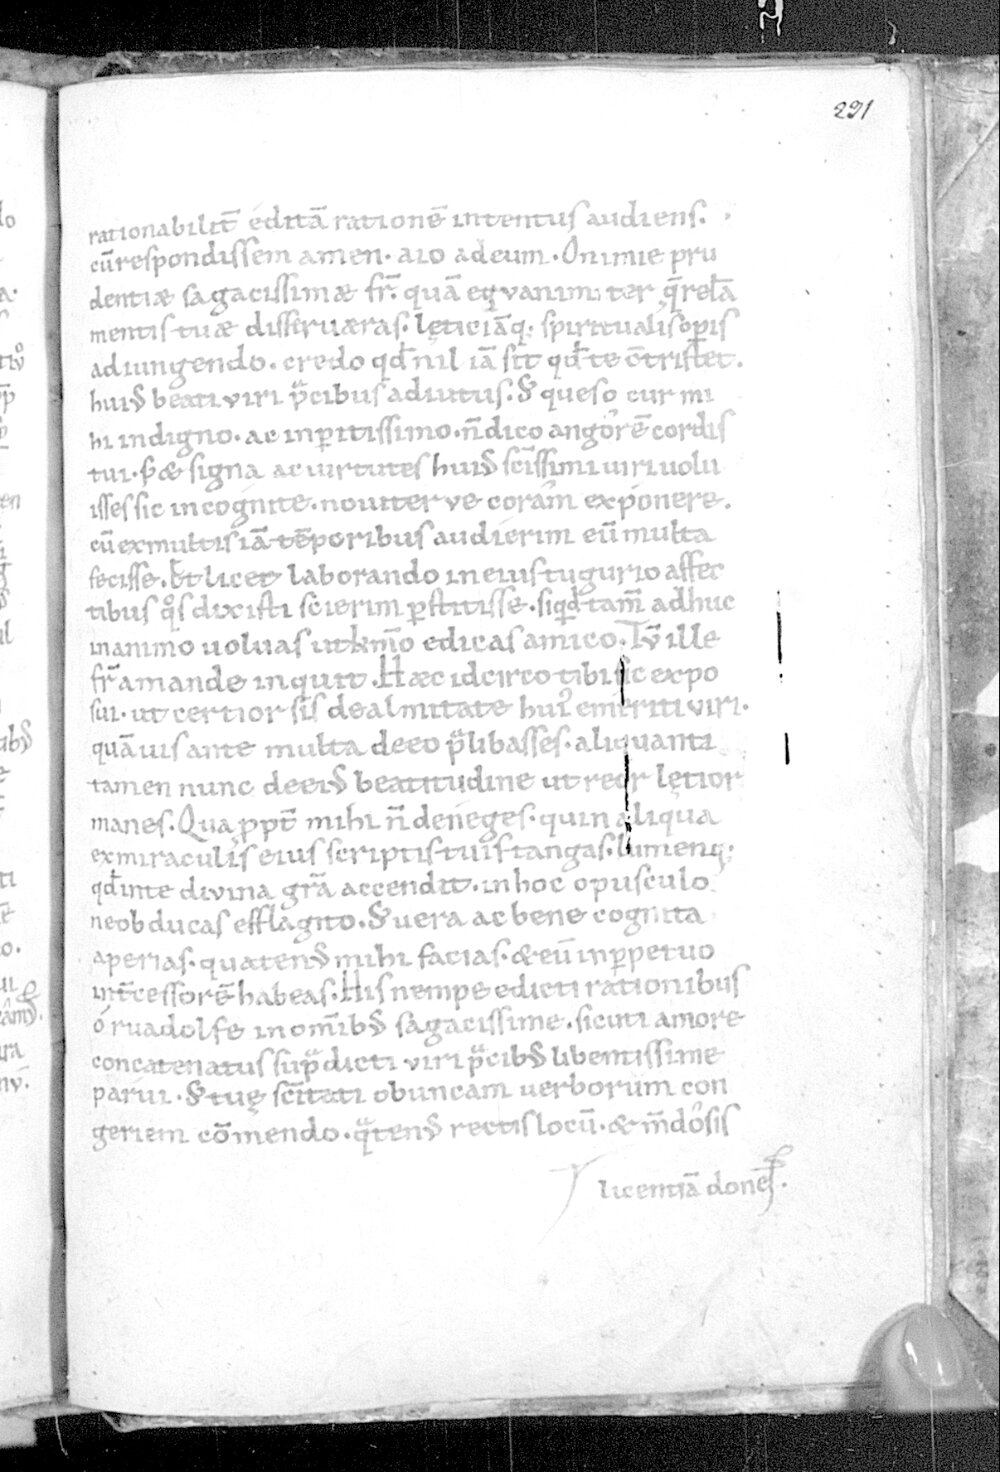 291
rationabilit̄ editā rationē intentus audiens.
cūrespondissem amen. aio adeum. O nimie pru
dentiæ sagacissimæ fr̄. quā equanimiter q̄relā
mentis tuæ disserueras. lęticiāq; spiritualis opis
adiungendo. credo qđ nil iā sit qđ te c̄tristet.
hui⁹ beati viri p̄cibus adiutus. S; queso cur mi
hi indigno. ac inꝑitissimo. n̄ dico angorē cordis
tui. s; & signa ac uirtutes hui⁹ sc̄issimi uiri uolu
isses sic incognite. nouiter ve coram exponere.
cū exmultis iā tēporibus audierim eū multa
fecisse. Et licet laborando in eius tugurio affec
tibus q̊s dixisti scierim p̄stitisse. siqđ tam̄ adhuc
inanimo uoluas ut kmo̅ edicas amico. Tū ille
fr̄ amande inquit. Hæc idcirco tibi sic expo
sui. ut certior sis de almitate hui⁹ emeriti viri.
quāuis ante multa deeo p̄libasses. aliquanti
tamen nunc deei⁹ beatitudine ut reor lętior
manes. Qua ꝓpt̄ mihi n̄ deneges. quin aliqua
exmiraculis eius scriptis tuis tangas. lumenq;
qđ inte divina gr̄a accendit. in hoc opusculo
ne obducas efflagito. S; uera ac bene cognita
aperias. quaten⁹ mihi facias. & eū inꝑpetuo
int̄cessorē habeas. His nempe edicti rationibus
o ruadolfe in omīb⁹ sagacissime. sicuti amore
concatenatus sup̄dicti viri p̄cib⁹ libentissime
parui. S; tuę sc̄itati obuncam uerborum con
geriem cōmendo. q̄ten⁹ rectis locū. & m̄dosis
licentiā dones.